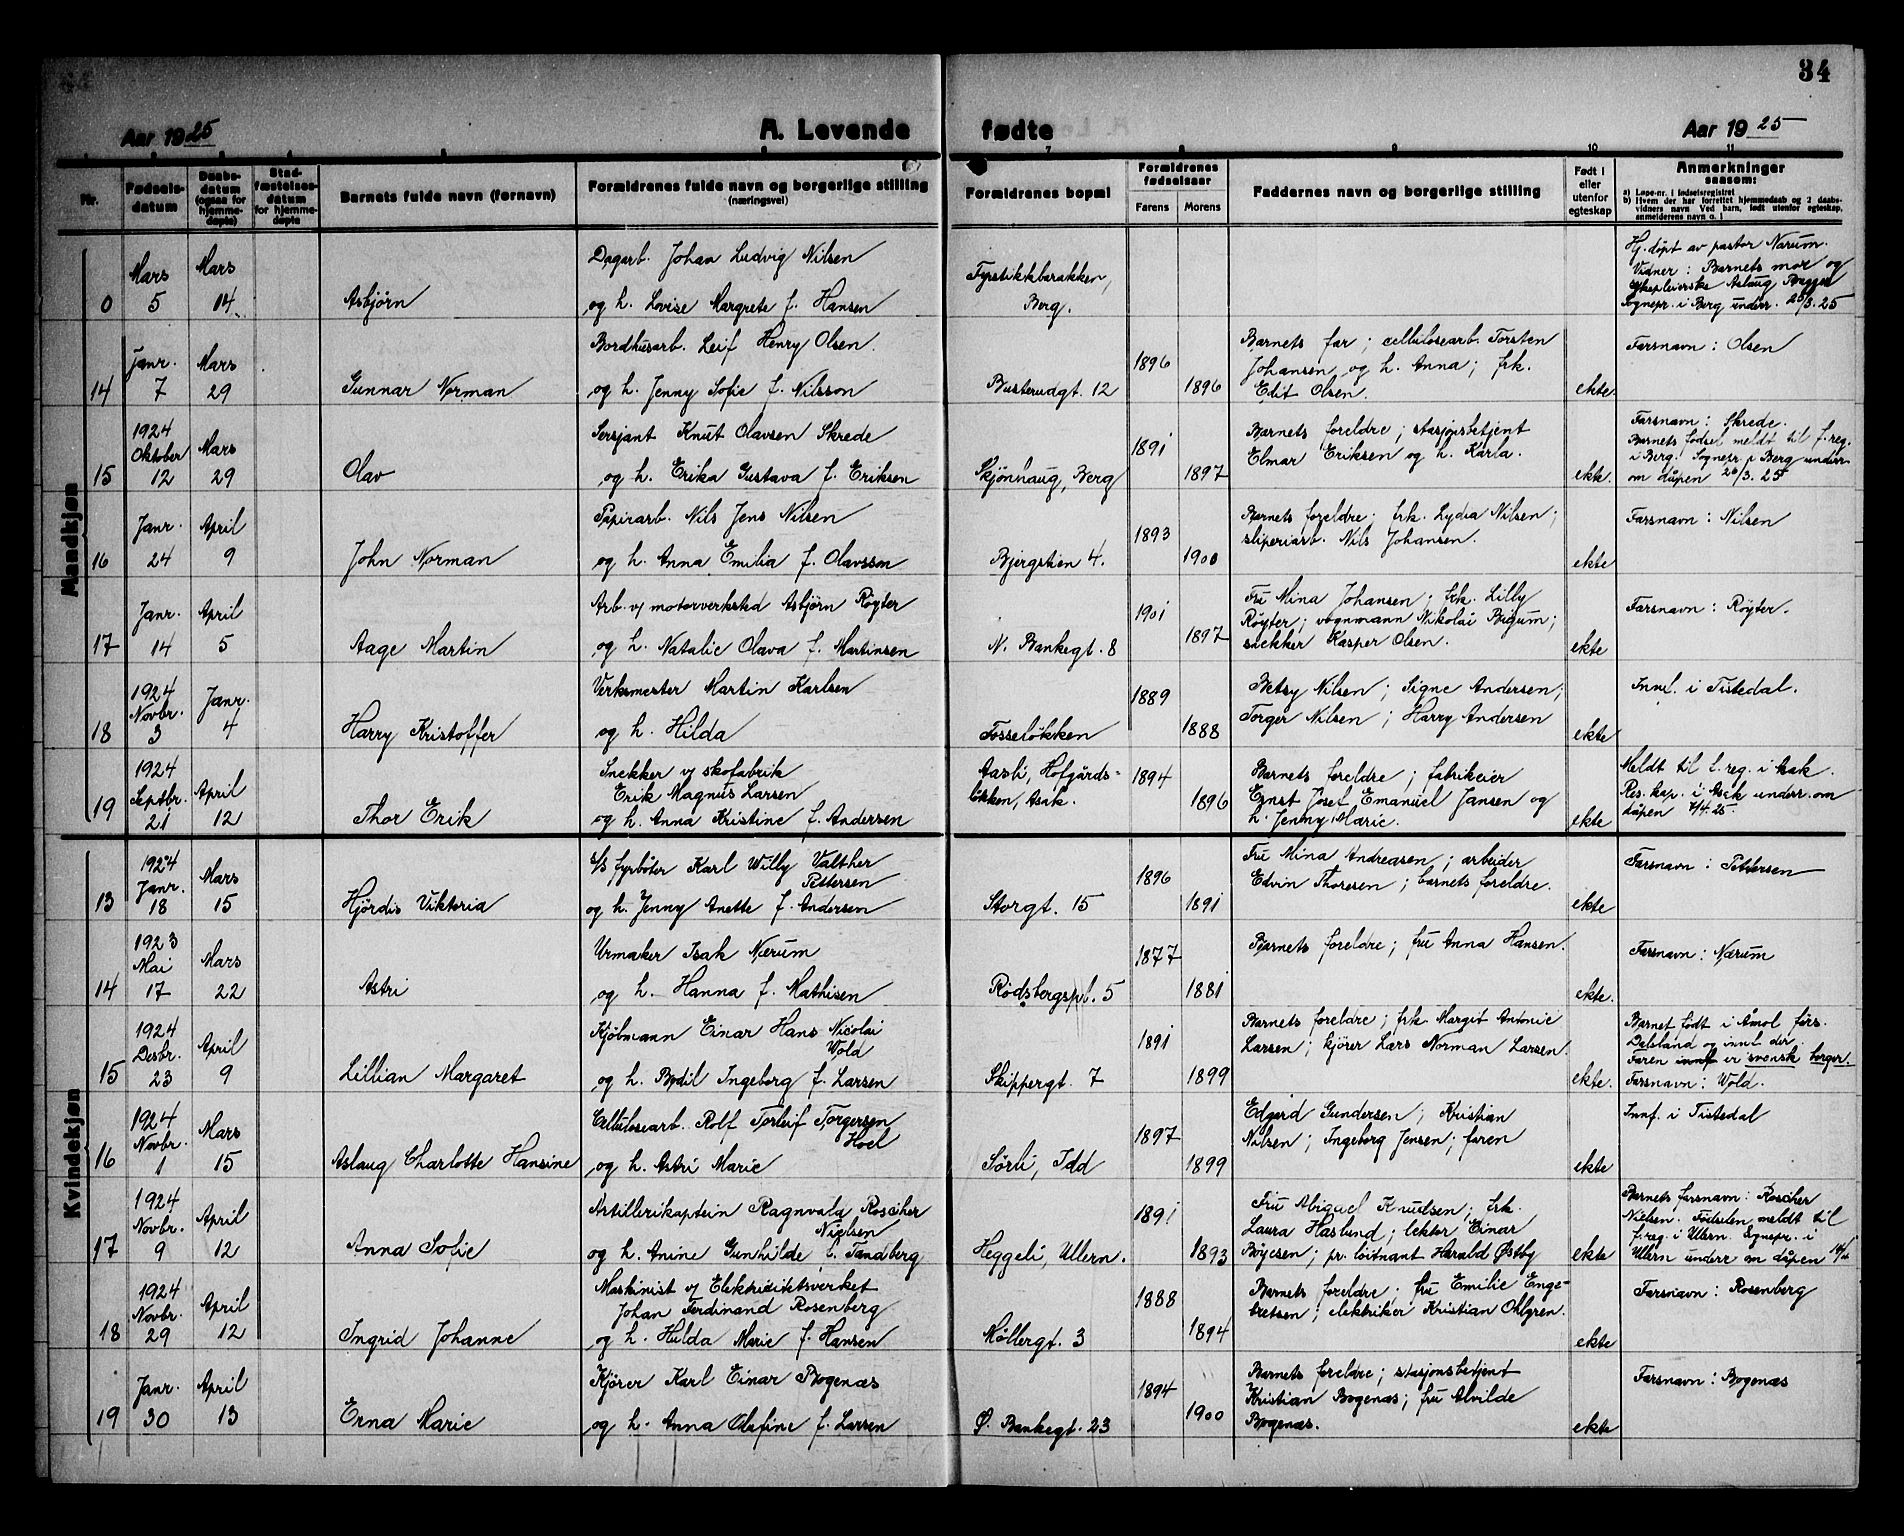 34
Aar 1925
A. Levende
fødte
Aar 1925
Nr.
Fødsels-
datum
Daabs-
datum
(ogsaa for
hjemme-
døpte)
Stad-
fæstelses-
datum
for hjemme-
døpte
Barnets fulde navn (fornavn)
Forældrenes fulde navn og borgerlige stilling
(næringsvei)
7
8
9
10
11
Forældrenes bopæl
Forældrenes
fødselsaar
Farens
Morens
Faddernes navn og borgerlige stilling
Født i
eller
utenfor
egteskap
Anmerkninger
saasom:
a) Løpe-nr. i fødselsregistret
b) Hvem der har forrettet hjemmedaab og 2 daabs-
vidners navn. Ved barn, født utenfor egteskap,
anmelderens navn o. l.
Mandkjøn
0
Mars
5
Mars
14
Asbjørn
Dagarb. Johan Ludvig Nilsen
og h. Lovise Margrete f. Hansen
Fyrstikkbarakken,
Berg.
Hj.døpt av pastor Narum.
Vidner: Barnets mor og
sykepleierske Aslaug
Sognepr. i Berg underr. 20/3.25
14
Janr.
7
Mars
29
Gunnar Norman
Bordhusarb. Leif Henry Olsen.
og h. Jenny Sofie f. Nilsson
Busterudgt. 12
1896
1896
Barnets far; cellulosearb. Torsten
Johansen og h. Anna; frk.
Edit Olsen.
ekte.
Farsnavn: Olsen
15
1924
Oktober
12
Mars
29
Olav
Sersjant Knut Olavsen Skrede
og h. Erika Gustava f. Eriksen
Skjønhaug, Berg
1891
1897
Barnets foreldre; stasjonsbetjent
Elmar Eriksen og h. Karla.
ekte.
Farsnavn: Skrede.
Barnets fødsel meldt til f.reg.
i Berg. Sognepr. i Berg underr.
om dåpen 20/3.25
16
Janr.
24
April
9
John Norman
Papirarb. Nils Jens Nilsen
og h. Anna Emilia f. Olavsson
Bjergstien 4.
1893
1900
Barnets foreldre; frk. Lydia Nilsen;
sliperiarb. Nils Johansen.
ekte
Farsnavn: Nilsen
17
Janr.
14
April
5
Aage Martin
Arb. v/ motorverksted Asbjørn Røyter
og h. Natalie Olava f. Martinsen
N. Bankegt. 8
1901
1897
Fru Mina Johansen; frk. Lilly
Røyter; vognmann Nikolai Bigum;
snekker Kasper Olsen.
ekte
Farsnavn: Røyter.
18
1924
Novbr.
3
Janr.
4
Harry Kristoffer
Verksmester Martin Karlsen
og h. Hilda
Fosseløkken
1889
1888
Betsy Nilsen; Signe Andersen;
Torger Nilsen; Harry Andersen
ekte
Innf. i Tistedal.
19
1924
Septbr.
21
April
12
Thor Erik
Snekker v/ skofabrik
Erik Magnus Larsen
og h. Anna Kristine f. Andersen
Aasli, Hofgårds-
løkken, Asak.
1894
1896
Barnets foreldre; fabrikeier
Ernst Josef Emanuel Jansen og
h. Jenny Marie.
ekte
Meldt til f.reg. i Asak.
Res. kap. i Asak underr. om
dåpen 7/4.25.
Kvindekjøn
13
1924
Janr.
18
Mars
15
Hjørdis Viktoria
s/s fyrbøter Karl Willy Valther
Pettersen
og h. Jenny Anette f. Andersen
Storgt. 15
1896
1891
Fru Mina Andreasen; arbeider
Edvin Thoresen; barnets foreldre.
ekte
Farsnavn: Pettersen
14
1923
Mai
17
Mars
22
Astri
Urmaker Isak Nærum
og h. Hanna f. Mathisen
Rødsbergspl. 5
1877
1881
Barnets foreldre; fru Anna Hansen.
ekte.
Farsnavn: Nærum
15
1924
Desbr.
23
April
9
Lillian Margaret
Kjøbmann Einar Hans Nicolai
Wold
og h. Bodil Ingeborg f. Larsen
Skippergt. 7
1891
1899
Barnets foreldre; frk. Margit Antonie
Larsen; kjører Lars Norman Larsen.
ekte.
Barnet født i Åmol førs.
Dalsland og innf. der.
Faren innf er svensk borger.
Farsnavn: Wold.
16
1924
Novbr.
1
Mars
15
Aslaug Charlotte Hansine
Cellulosearb. Rolf Torleif Torgersen
Hoel
og h. Astri Marie
Sørli, Idd
1897
1899
Edgard Gundersen; Kristian
Nilsen; Ingeborg Jensen; faren
ekte
Innf. i Tistedal
17
1924
Novbr.
9
April
12
Anna Sofie
Artillerikaptein Ragnvald Roscher
Nielsen
og h. Anine Gunhilde f. Tandberg
Heggeli, Ullern.
1891
1893
Fru Abigael Knudsen; frk.
Laura Haslund; lektor Einar
Boyesen; pr. løitnant Harald Østby
ekte
Barnets farsnavn: Roscher
Nielsen. Fødselen meldt til
f.reg. i Ullern. Sognepr. i
Ullern underr om dåpen 14/4
18
1924
Novbr.
29
April
12
Ingrid Johanne
Maskinist v/ Elektrisitetsverket
Johan Ferdinand Rosenberg
og h. Hulda Marie f. Hansen
Møllergt. 3
1888
1894
Barnets foreldre; fru Emilie Enge-
bretsen; elektriker Kristian Ohlgren.
ekte
Farsnavn: Rosenberg
19
Janr.
30
April
13
Erna Marie
Kjører Karl Einar Bogenæs
og h. Anna Olafine f. Larsen
Ø. Bankegt. 23
1894
1900
Barnets foreldre; stasjonsbetjent
Kristian Bogenæs; fru Alvilde
Bogenæs.
ekte
Farsnavn: Bogenæs